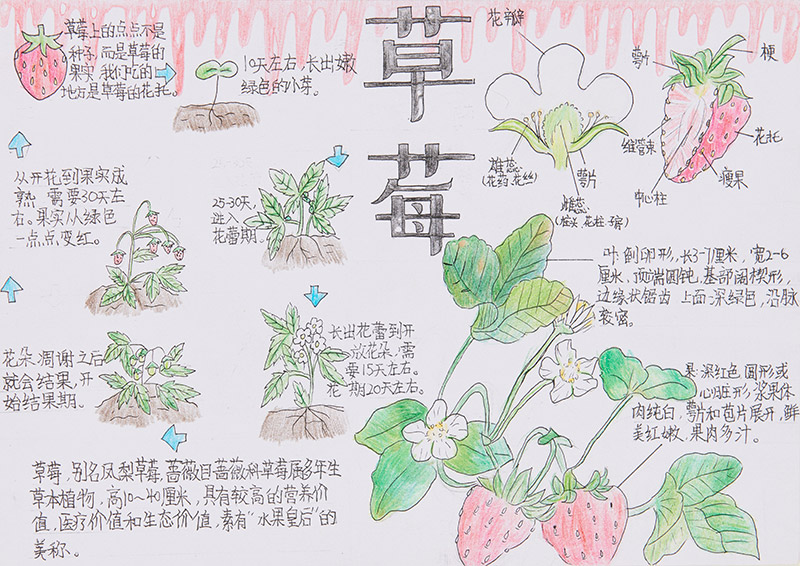 草莓
草莓上的点点不是
种子,而是草莓的
果实,我们吃的
地方是草莓的花托。
10天左右,长出嫩
绿色的小芽。
25-30天,
进入
花蕾期。
长出花蕾到开
放花朵,需
要15天左右。
花期20天左右。
花朵凋谢之后
就会结果,开
始结果期。
从开花到果实成
熟,需要30天左
右。果实从绿色
一点点变红。
草莓,别名凤梨草莓,蔷薇目蔷薇科草莓属多年生
草本植物,高10-40厘米,具有较高的营养价
值,医疗价值和生态价值,素有“水果皇后”的
美称。
花瓣
雄蕊
(花药、花丝)
萼片
雌蕊
(柱头、花柱、子房)
萼片
梗
维管束
花托
中心柱
瘦果
叶:倒卵形,长3-7厘米,宽2-6
厘米,顶端圆钝,基部阔楔形,
边缘状锯齿 上面深绿色,沿脉
较密。
果:深红色 圆形或
心脏形,浆果体
肉纯白,萼片和苞片展开,鲜
美红嫩,果肉多汁。